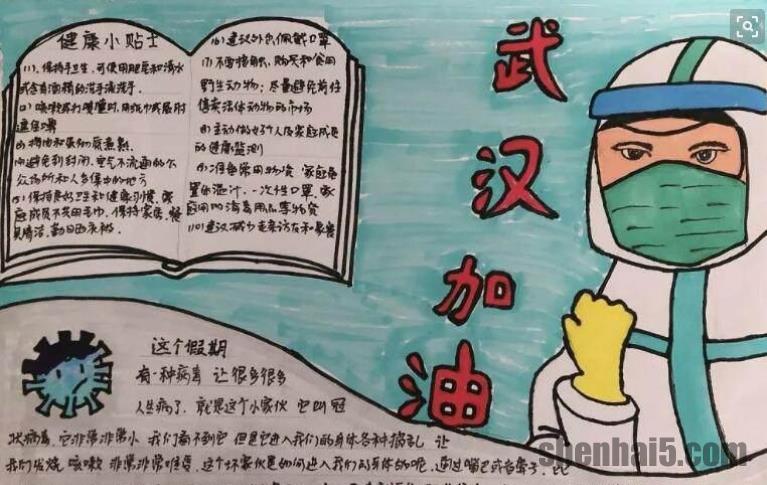 健康小贴士
(1)、保持手卫生，可使用肥皂和清水
或含有酒精的洗手液洗手.
(2) 咳嗽或打喷嚏时，用纸巾或屈肘
遮住口鼻
(3) 将肉和蛋彻底煮熟.
(4) 避免到封闭、空气不流通的公
众场所和人多集中的地方
(5) 保持良好卫生和健康习惯，家
庭成员不共用毛巾，保持家居、餐
具清洁，勤晒衣被.
(6) 建议外出佩戴口罩
(7) 不要接触、购买和食用
野生动物；尽量避免前往
售卖活体动物的市场
(8) 主动做好个人及家庭成员
的健康监测
(9) 准备常用物资，家庭备
置体温计、一次性口罩、家
庭用的消毒用品等物资
(10) 建议减少走亲访友和聚餐
武
汉
加
油
这个假期
有一种病毒 让很多很多
人生病了，就是这个小家伙 它叫 冠
状病毒，它非常非常小 我们看不到它 但是它进入我们的身体各种捣乱 让
我们发烧 咳嗽 非常非常难受，这个坏家伙是如何进入我们的身体的呢，通过嘴巴或者鼻子，比
shenhai5.com